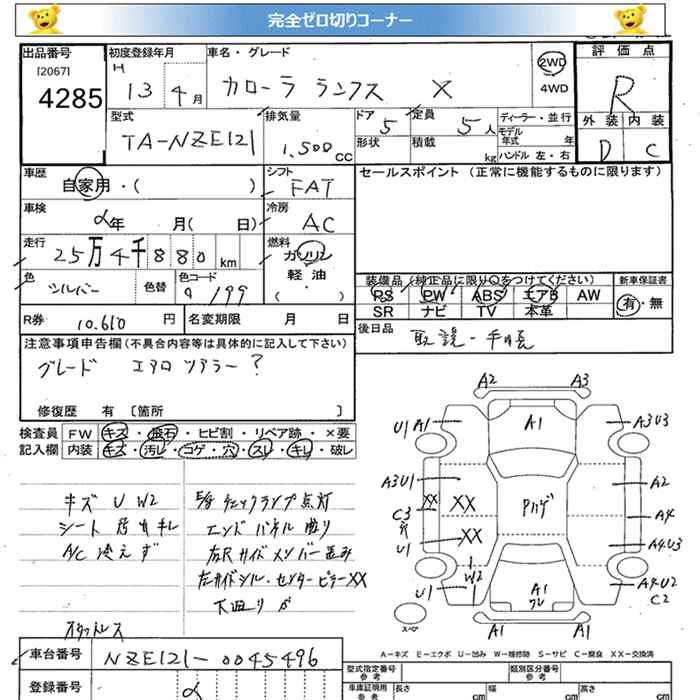 完全ゼロ切りコーナー
出品番号 初度登録年月 車名・グレード 評価点
[2067] H 2WD
4285 13 4月 カローラ ランクス X 4WD R
型式 排気量 ドア 定員 ディーラー・並行 外装 内装
TA-NZE121 1,500cc 5 5人 モデル年式 年 D C
形状 積載 kg ハンドル 左・右
車歴 シフト セールスポイント (正常に機能するものに限ります)
自家用・( ) FAT
車検 冷房
年 月( 日) AC
走行 燃料
25万4千880km ガソリン
軽・油
色 色替 色コード ( )
シルバー 199
装備品 (純正品に限り○をつけてください) 新車保証書
PS PW ABS エアB AW 有・無
SR ナビ TV 本革
R券 10.610円 名変期限 月 日 後日品 取説・手帳
注意事項申告欄 (不具合内容等は具体的に記入して下さい)
グレード エアロツアラー?
修復歴 有 [箇所 ]
検査員 FW キズ・飛石・ヒビ割・リペア跡・×要
記入欄 内装 キズ・汚レ・コゲ・穴・スレ・キレ・破レ
キズ U W2
シート 汚れ キレ
A/C 冷えず
チェックランプ点灯
エンドパネル曲り
左Rサイドメンバー歪み
左サイドシル・センターピラーXX
下廻り
A2 A3
U1 A1 A1 A3U3
A3U1 A2
XX XX Pハゲ A4
C3
U1 XX A4.U3
W2
U1 A1 A4.U2
C2
A1 A1
A−キズ E−エクボ U−凹み W−補修跡 S−サビ C−腐食 XX−交換済
車台番号 NZE121-0045496
型式指定番号 参考 類別区分番号 参考
登録番号
車庫証明用 参考 長さ cm 幅 cm 高さ cm